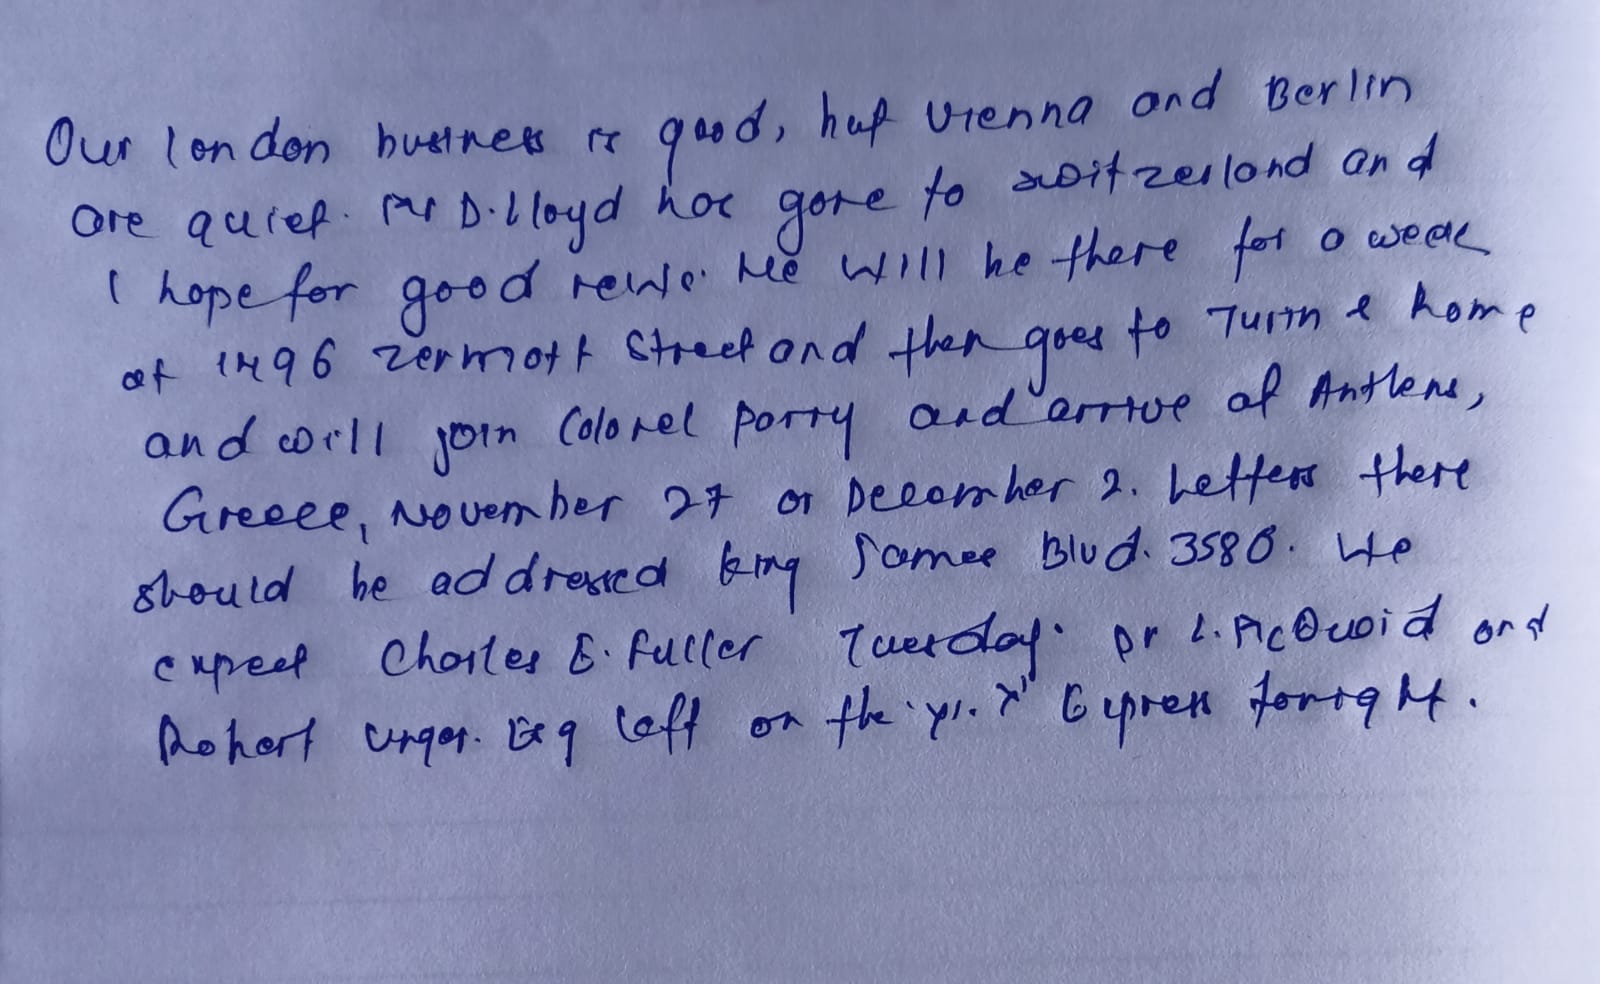 Our london business is good, but Vienna and Berlin
are quiet. Mr D. Lloyd has gone to switzerland and
I hope for good news. He will be there for a week
at 1496 zermott Street and then goes to Turin & Rome
and will join Colonel Parry and arrive at Anthens,
Greece, November 27 or December 2. Letters there
should be addressed king James Blvd. 3580. We
expect Charles E. Fuller Tuesday. Dr L. McQuoid and
Robert Unger. Esq left on the 'Y. X' Express tonight.